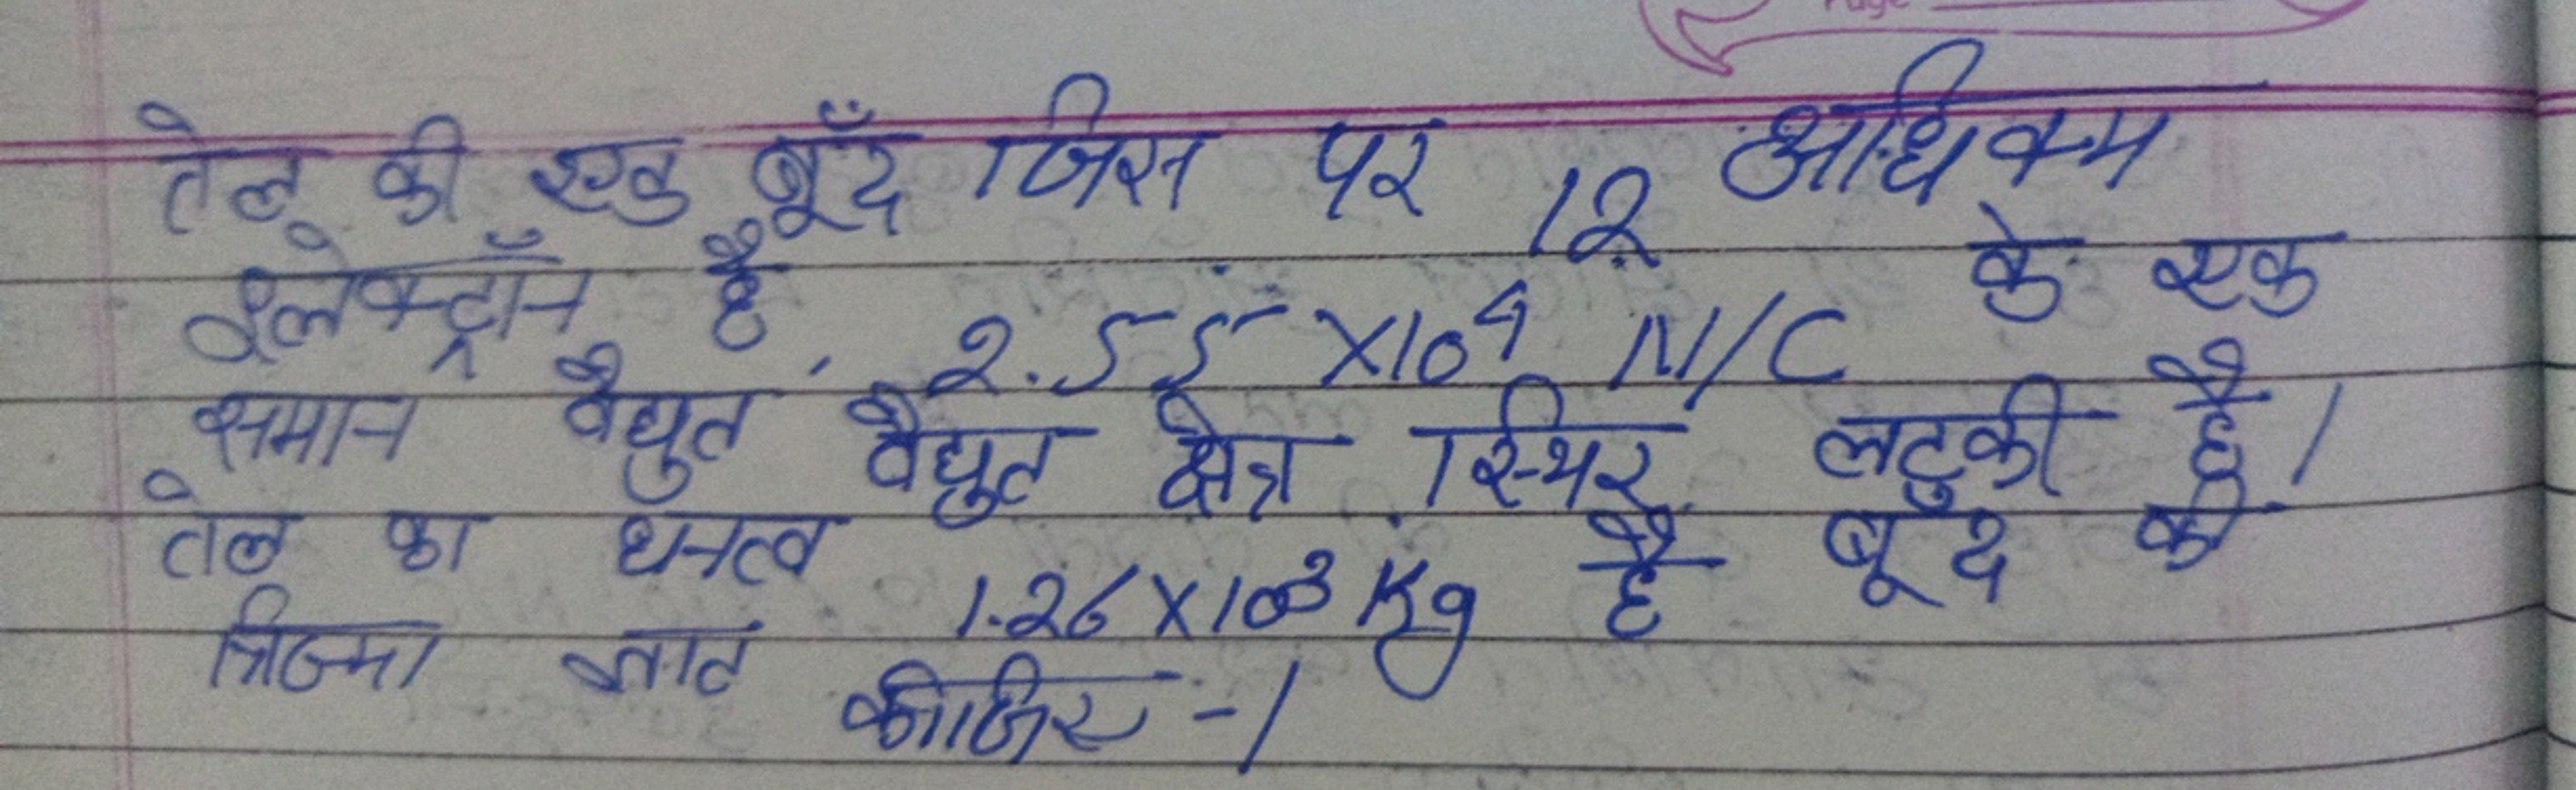 Page
तेल की एक बूँद जिस पर 12 अधिकम
इलेक्ट्रॉन है, 2.55 ×10⁴ N/C के एक
समान वैद्युत वैद्युत क्षेत्र स्थिर लटकी है।
तेल का धनत्व 1.26×10³ Kg है बूद की
त्रिज्या ज्ञात कीजिए -।